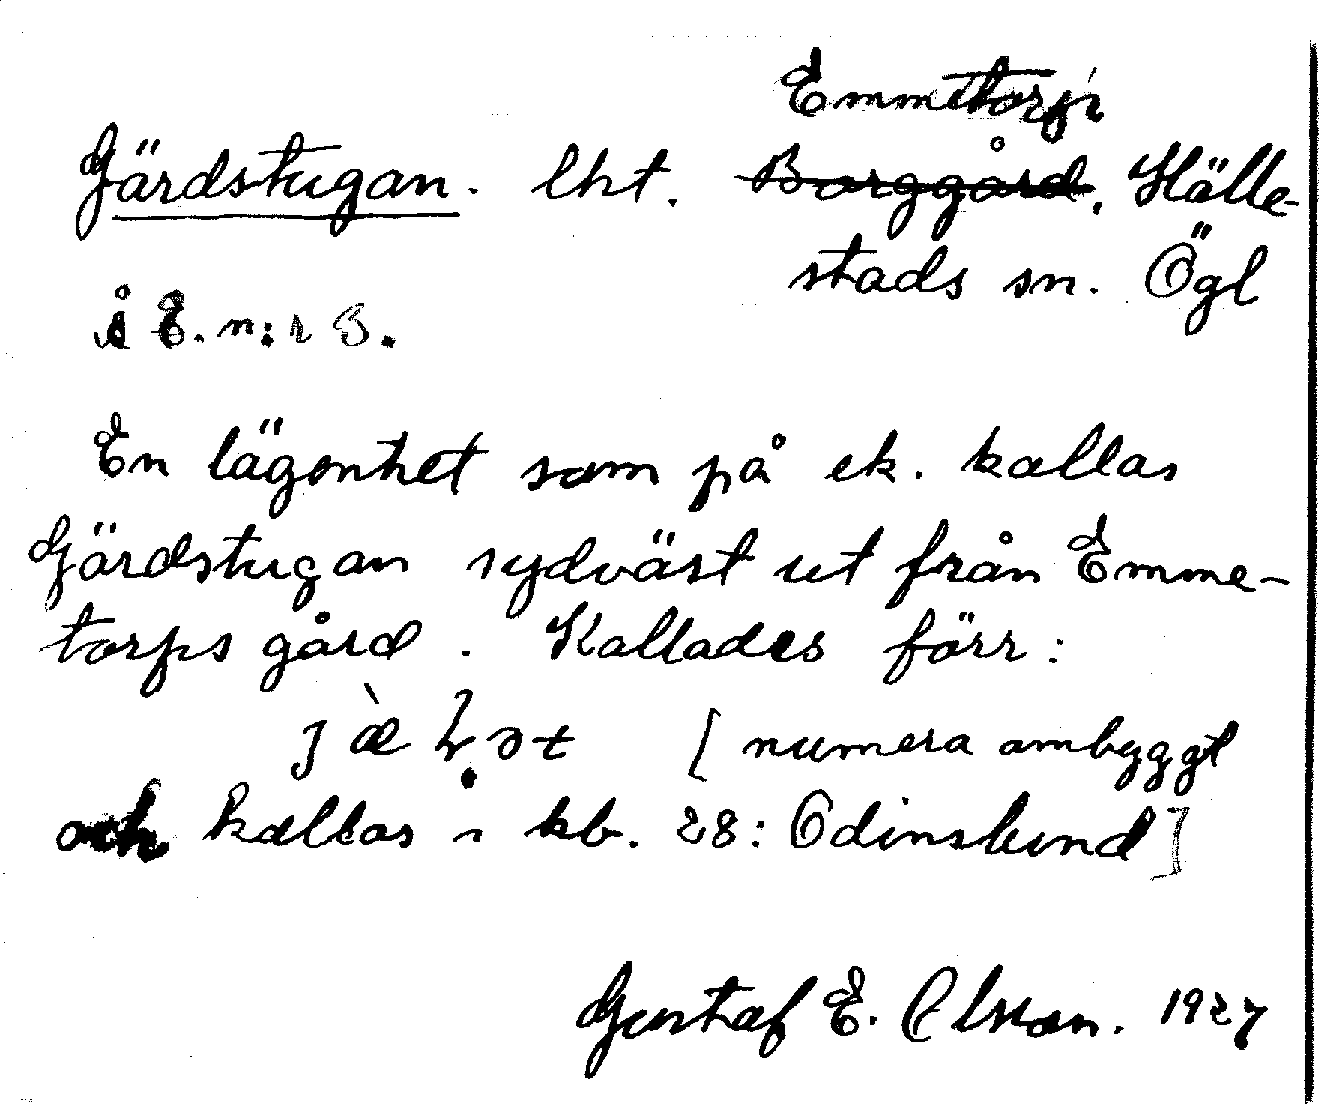 Emmetorp
Gärdstugan. lht. Borggård, Hälle-
stads sn. Ögl
å E. n:r 3.
En lägenhet som på ek. kallas
Gärdstugan sydväst ut från Emme-
torps gård. Kallades förr:
[numera ombyggt
och kallas i kb. 28: Odinslund]
Gustaf E. Olsson. 1927